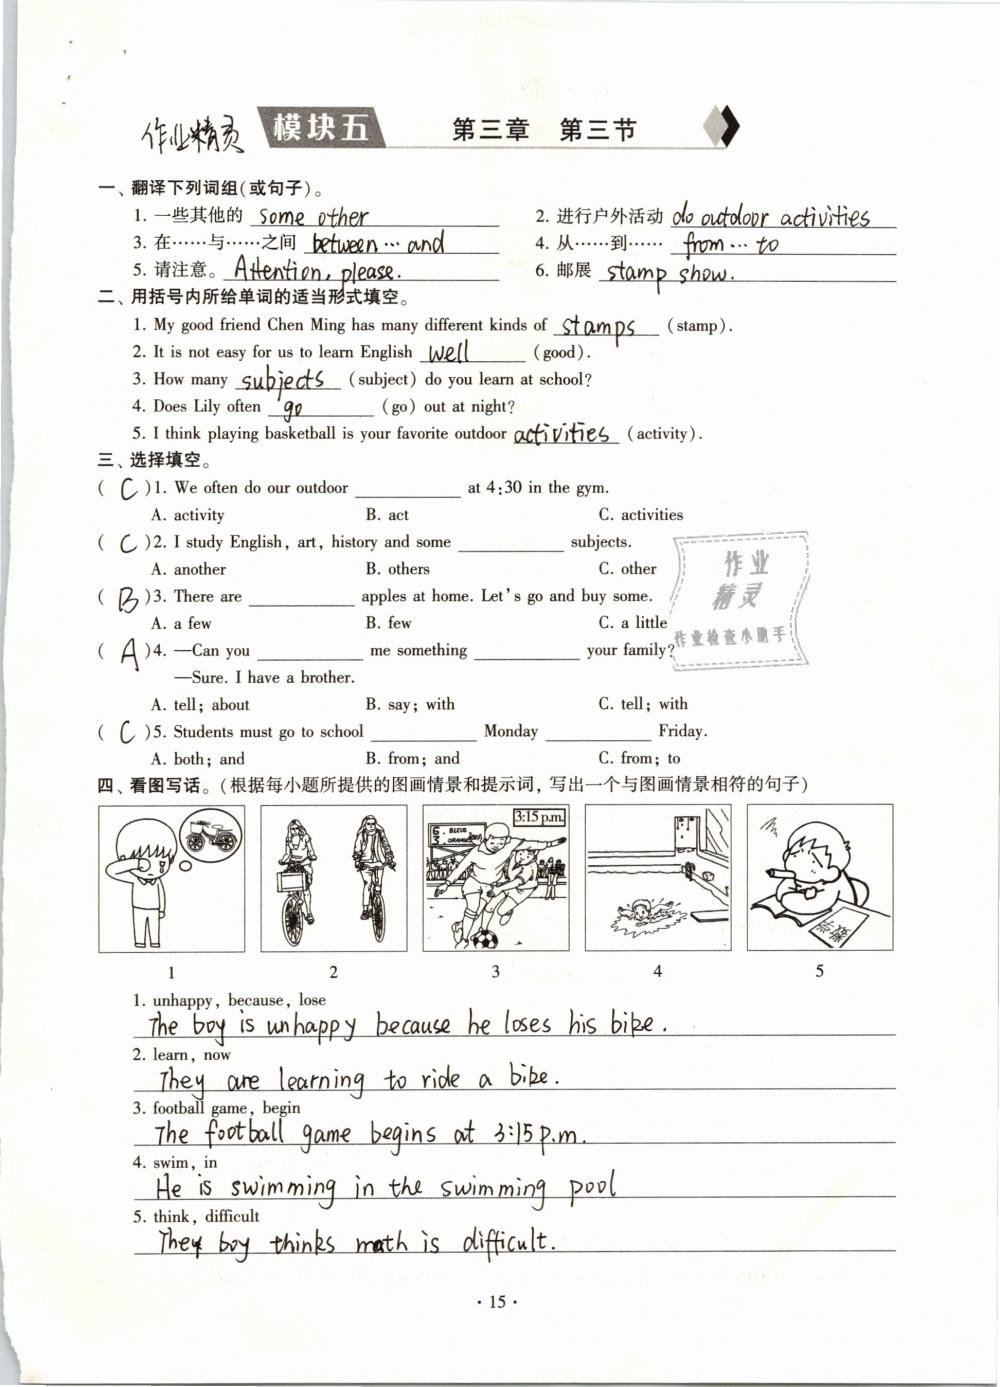 作业精灵 模块五 第三章 第三节
一、翻译下列词组(或句子)。
1. 一些其他的 some other 2. 进行户外活动 do outdoor activities
3. 在……与……之间 between … and 4. 从……到…… from … to
5. 请注意。 Attention, please. 6. 邮展 stamp show.
二、用括号内所给单词的适当形式填空。
1. My good friend Chen Ming has many different kinds of stamps (stamp).
2. It is not easy for us to learn English well (good).
3. How many subjects (subject) do you learn at school?
4. Does Lily often go (go) out at night?
5. I think playing basketball is your favorite outdoor activities (activity).
三、选择填空。
( C )1. We often do our outdoor ____ at 4:30 in the gym.
A. activity B. act C. activities
( C )2. I study English, art, history and some ____ subjects.
A. another B. others C. other
( B )3. There are ____ apples at home. Let's go and buy some.
A. a few B. few C. a little
( A )4. —Can you ____ me something ____ your family?
—Sure. I have a brother.
A. tell; about B. say; with C. tell; with
( C )5. Students must go to school ____ Monday ____ Friday.
A. both; and B. from; and C. from; to
作业
精灵
作业检查小助手
四、看图写话。(根据每小题所提供的图画情景和提示词，写出一个与图画情景相符的句子)
3:15 p.m.
1 2 3 4 5
1. unhappy, because, lose
The boy is unhappy because he loses his bike.
2. learn, now
They are learning to ride a bike.
3. football game, begin
The football game begins at 3:15 p.m.
4. swim, in
He is swimming in the swimming pool
5. think, difficult
They boy thinks math is difficult.
· 15 ·